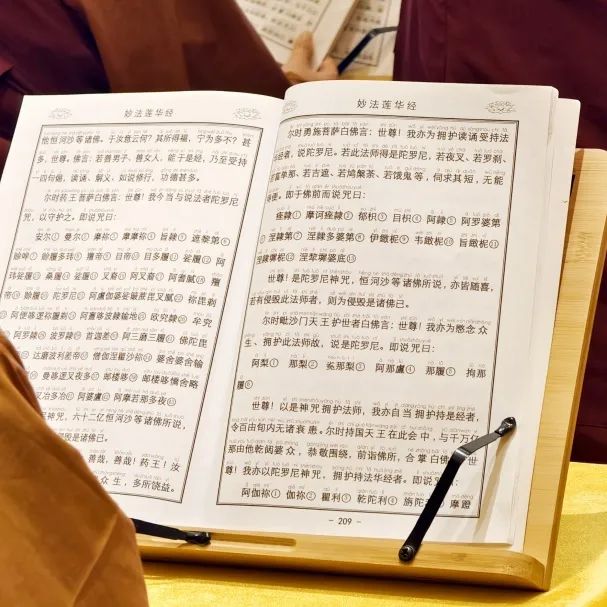 妙法莲华经
他恒河沙等诸佛。于汝意云何？其所得福，宁为多不？甚
多，世尊。佛言：若善男子、善女人，能于是经，乃至受持
一四句偈，读诵、解义、如说修行，功德甚多。
尔时药王菩萨白佛言：世尊！我今当与说法者陀罗尼
咒，以守护之。即说咒曰：
安尔① 曼尔② 摩祢③ 摩摩祢④ 旨隸⑤ 遮黎第⑥
赊履多玮⑧ 羶帝⑨ 目帝⑩ 目多履⑪ 娑履⑫ 阿
玮娑履⑬ 桑履⑭ 娑履⑮ 叉裔⑯ 阿叉裔⑰ 阿耆腻⑱ 羶
帝⑲ 赊履⑳ 陀罗尼㉑ 阿盧伽婆娑簸蔗毘叉膩㉒ 祢毘剃
阿便哆逻祢履剃㉔ 阿亶哆波隸输地㉕ 欧究隸㉖ 牟究
阿罗隸㉘ 波罗隸㉙ 首迦差㉚ 阿三磨三履㉛ 佛陀毘
达磨波利差帝㉝ 僧伽涅瞿沙祢㉞ 婆舍婆舍输
曼哆逻叉夜多㊲ 邮楼哆㊳ 邮楼哆憍舍略
叉冶多冶㊶ 阿婆盧㊷ 阿摩若那多夜㊸
神咒，六十二亿恒河沙等诸佛所说，
则为侵毁是诸佛已。
善哉，善哉！药王！汝
众生，多所饶益。
妙法莲华经
尔时勇施菩萨白佛言：世尊！我亦为拥护读诵受持法
经者，说陀罗尼。若此法师得是陀罗尼，若夜叉、若罗刹、
富单那、若吉遮、若鸠槃荼、若饿鬼等，伺求其短，无能
便。即于佛前而说咒曰：
痤隸① 摩诃痤隸② 郁枳③ 目枳④ 阿隸⑤ 阿罗婆第
涅隸第⑦ 涅隸多婆第⑧ 伊緻柅⑨ 韦緻柅⑩ 旨緻柅⑪
涅隸墀柅⑫ 涅犁墀婆底⑬
世尊！是陀罗尼神咒，恒河沙等诸佛所说，亦皆随喜，
若有侵毁此法师者，则为侵毁是诸佛已。
尔时毗沙门天王护世者白佛言：世尊！我亦为愍念众
生、拥护此法师故，说是陀罗尼。即说咒曰：
阿梨① 那梨② 㝹那梨③ 阿那盧④ 那履⑤ 拘那
履⑥
世尊！以是神咒拥护法师，我亦自当拥护持是经者，
令百由旬内无诸衰患。尔时持国天王在此会中，与千万亿
那由他乾闼婆众，恭敬围绕，前诣佛所，合掌白佛言：世
尊！我亦以陀罗尼神咒，拥护持法华经者。即说咒曰：
阿伽祢① 伽祢② 瞿利③ 乾陀利④ 旃陀利⑤ 摩蹬
- 209 -